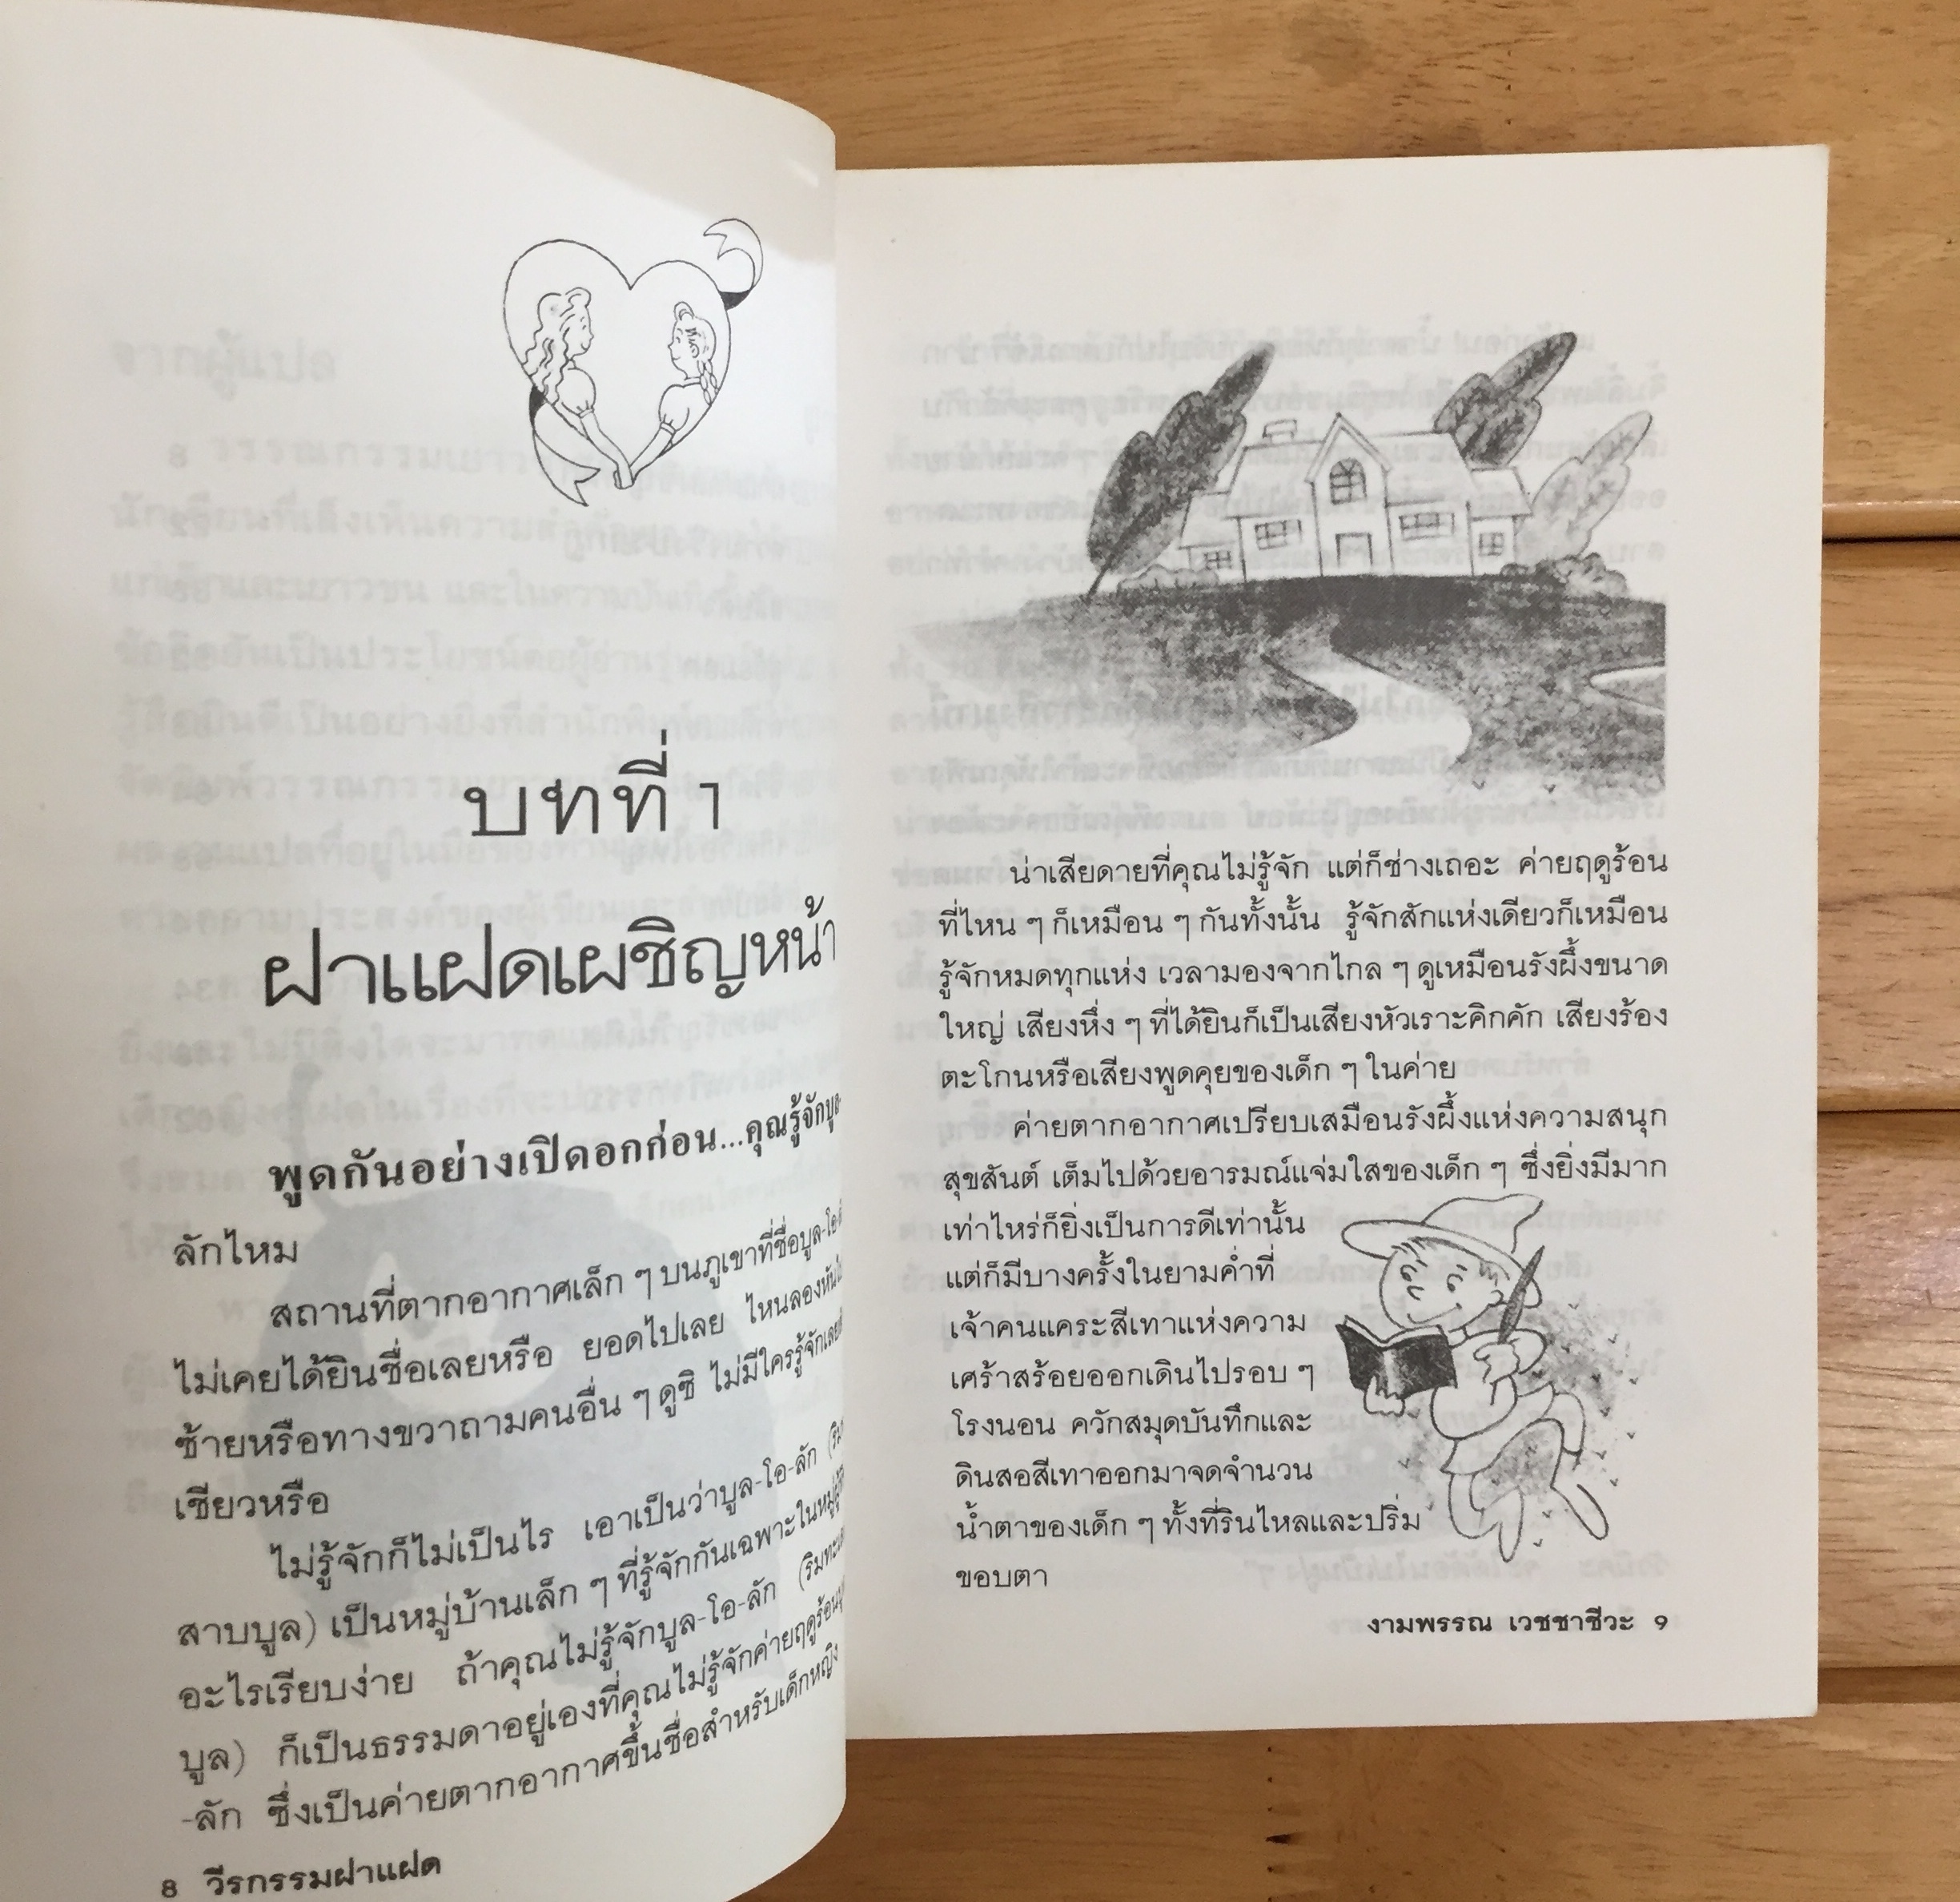 บทที่ ๑
ฝาแฝดเผชิญหน้า
พูดกันอย่างเปิดอกก่อน...คุณรู้จักบูล-
ลักไหม
สถานที่ตากอากาศเล็ก ๆ บนภูเขาที่ชื่อบูล-โอ-
ไม่เคยได้ยินชื่อเลยหรือ ยอดไปเลย ไหนลองหันไป
ซ้ายหรือทางขวาถามคนอื่น ๆ ดูซิ ไม่มีใครรู้จักเลย
เชียวหรือ
ไม่รู้จักก็ไม่เป็นไร เอาเป็นว่าบูล-โอ-ลัก
สาบบูล) เป็นหมู่บ้านเล็ก ๆ ที่รู้จักกันเฉพาะในหมู่
อะไรเรียบง่าย ถ้าคุณไม่รู้จักบูล-โอ-ลัก (ริมทะเล
บูล) ก็เป็นธรรมดาอยู่เองที่คุณไม่รู้จักค่ายฤดูร้อน
-ลัก ซึ่งเป็นค่ายตากอากาศขึ้นชื่อสำหรับเด็กหญิง
8 วีรกรรมฝาแฝด
น่าเสียดายที่คุณไม่รู้จัก แต่ก็ช่างเถอะ ค่ายฤดูร้อน
ที่ไหน ๆ ก็เหมือน ๆ กันทั้งนั้น รู้จักสักแห่งเดียวก็เหมือน
รู้จักหมดทุกแห่ง เวลามองจากไกล ๆ ดูเหมือนรังผึ้งขนาด
ใหญ่ เสียงหึ่ง ๆ ที่ได้ยินก็เป็นเสียงหัวเราะคิกคัก เสียงร้อง
ตะโกนหรือเสียงพูดคุยของเด็ก ๆ ในค่าย
ค่ายตากอากาศเปรียบเสมือนรังผึ้งแห่งความสนุก
สุขสันต์ เต็มไปด้วยอารมณ์แจ่มใสของเด็ก ๆ ซึ่งยิ่งมีมาก
เท่าไหร่ก็ยิ่งเป็นการดีเท่านั้น
แต่ก็มีบางครั้งในยามค่ำที่
เจ้าคนแคระสีเทาแห่งความ
เศร้าสร้อยออกเดินไปรอบ ๆ
โรงนอน ควักสมุดบันทึกและ
ดินสอสีเทาออกมาจดจำนวน
น้ำตาของเด็ก ๆ ทั้งที่รินไหลและปริ่ม
ขอบตา
งามพรรณ เวชชาชีวะ 9